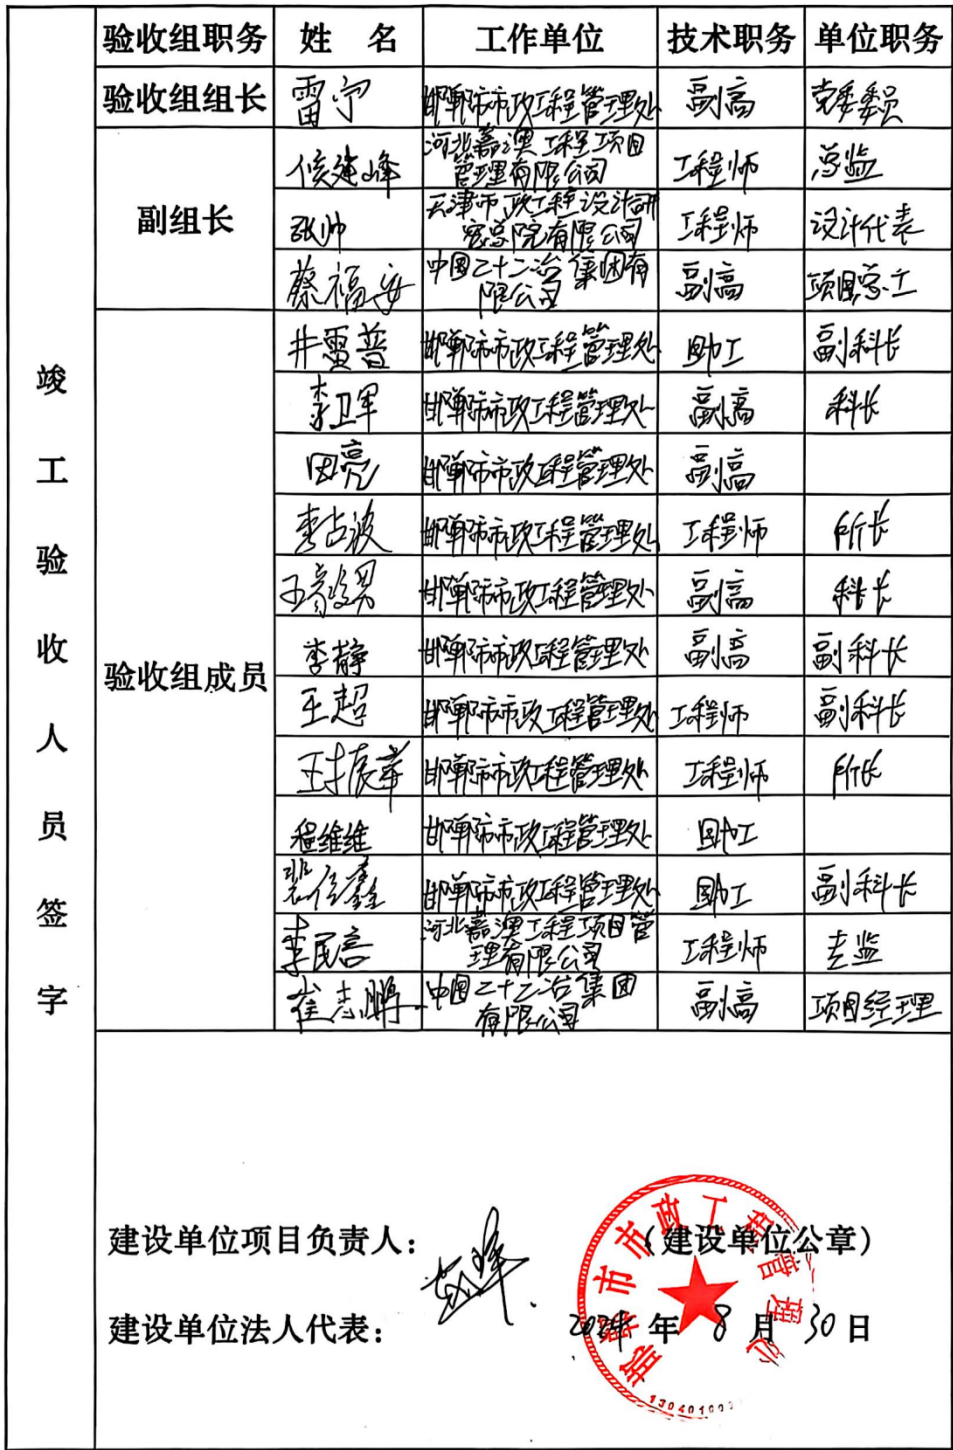 竣工验收人员签字
验收组职务 姓 名 工作单位 技术职务 单位职务
验收组组长 雷宁 邯郸市市政工程管理处 副高 党委委员
副组长
侯建峰 河北嘉澳工程项目管理有限公司 工程师 总监
张帅 天津市政工程设计研究总院有限公司 工程师 设计代表
蔡福安 中国二十二冶集团有限公司 副高 项目总工
验收组成员
井雷普 邯郸市市政工程管理处 助工 副科长
李卫军 邯郸市市政工程管理处 副高 科长
田亮 邯郸市市政工程管理处 副高
李占波 邯郸市市政工程管理处 工程师 所长
邯郸市市政工程管理处 副高 科长
李静 邯郸市市政工程管理处 副高 副科长
王超 邯郸市市政工程管理处 工程师 副科长
邯郸市市政工程管理处 工程师 所长
程维维 邯郸市市政工程管理处 助工
邯郸市市政工程管理处 助工 副科长
李民言 河北嘉澳工程项目管理有限公司 工程师 专监
崔志鹏 中国二十二冶集团有限公司 副高 项目经理
建设单位项目负责人：
（建设单位公章）
建设单位法人代表：
2024 年 8 月 30 日
邯郸市市政工程管理处